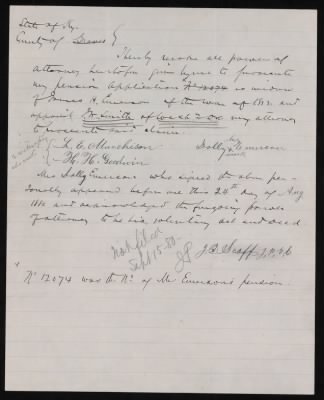 State of Ky.
County of Graves }
I hereby revoke all powers of
attorney heretofore given by me to prosecute
my pension application No 12074 as widow
of James H. Emerson of the war of 1812 and
appoint W. Smith of Wash D.C. my attorney
to prosecute said claim.
L. C. Murchison
H. H. Goodwin
Dolly her x mark Emerson
Mrs Dolly Emerson who signed the above per-
sonally appeared before me this 24th day of Aug
1880 and acknowledged the foregoing power
of attorney to be her voluntary act and deed.
J.P.
Not filed
Sept 15-80-
No 12074 was the No of Mr Emerson's pension.